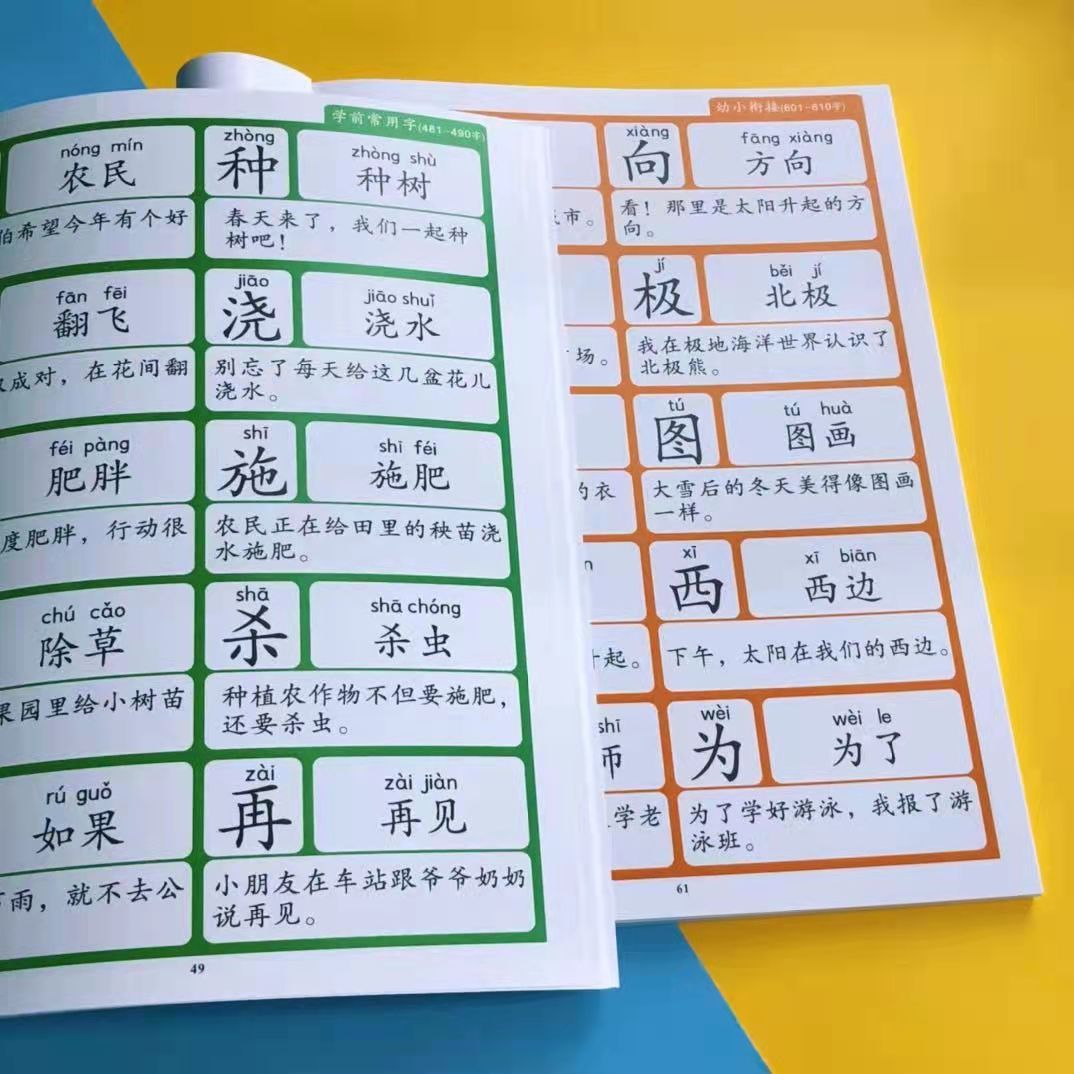 学前常用字(481-490字)
nóng mín
农民
zhòng
种
zhòng shù
种树
伯希望今年有个好
春天来了，我们一起种
树吧！
fān fēi
翻飞
jiāo
浇
jiāo shuǐ
浇水
成对，在花间翻
别忘了每天给这几盆花儿
浇水。
féi pàng
肥胖
shī
施
shī féi
施肥
度肥胖，行动很
农民正在给田里的秧苗浇
水施肥。
chú cǎo
除草
shā
杀
shā chóng
杀虫
果园里给小树苗
种植农作物不但要施肥，
还要杀虫。
rú guǒ
如果
zài
再
zài jiàn
再见
雨，就不去公
小朋友在车站跟爷爷奶奶
说再见。
49
幼小衔接(601-610字)
xiàng
向
fāng xiàng
方向
市。
看！那里是太阳升起的方
向。
jí
极
běi jí
北极
场。
我在极地海洋世界认识了
北极熊。
tú
图
tú huà
图画
的衣
大雪后的冬天美得像图画
一样。
xī
西
xī biān
西边
起。
下午，太阳在我们的西边。
shī
师
wèi
为
wèi le
为了
学老
为了学好游泳，我报了游
泳班。
61